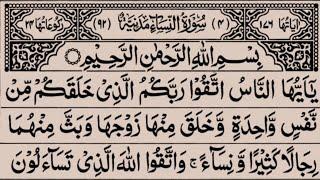 اٰیَاتُهَا ١٧٦ (٤) سُوْرَةُ النِّسَآءِ مَدَنِیَّةٌ (٩٢) رُكُوْعَاتُهَا ٢٤
بِسْمِ اللّٰهِ الرَّحْمٰنِ الرَّحِیْمِ
یٰۤاَیُّهَا النَّاسُ اتَّقُوْا رَبَّكُمُ الَّذِیْ خَلَقَكُمْ مِّنْ
نَّفْسٍ وَّاحِدَةٍ وَّخَلَقَ مِنْهَا زَوْجَهَا وَبَثَّ مِنْهُمَا
رِجَالًا كَثِیْرًا وَّنِسَآءً ۚ وَاتَّقُوا اللّٰهَ الَّذِیْ تَسَآءَلُوْنَ